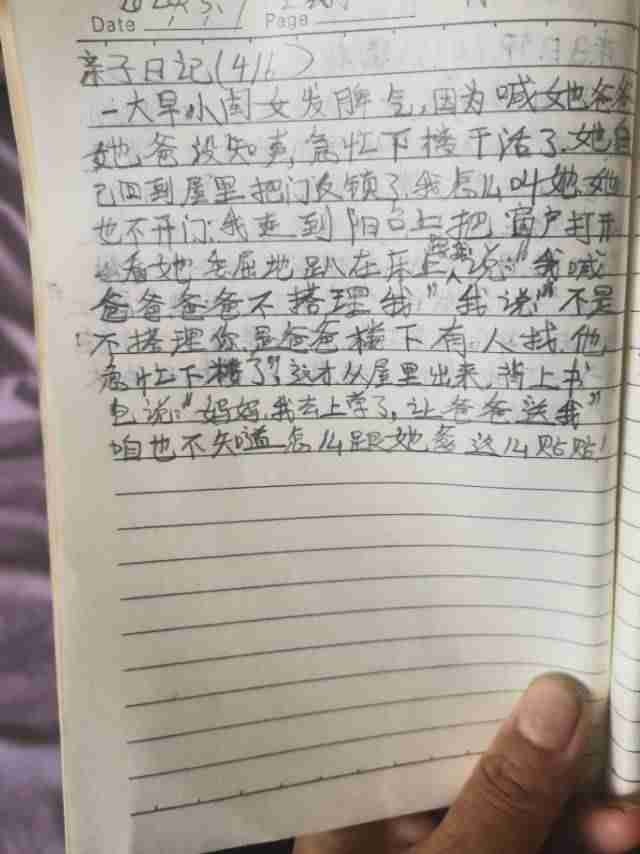 Date Page
亲子日记(416)
一大早小闺女发脾气,因为喊她爸爸
她爸没知声,急忙下楼干活了,她自
己回到屋里把门反锁了,我怎么叫她,她
也不开门,我走到阳台上把窗户打开
看她委屈地趴在床上 说:"我喊
爸爸爸爸不搭理我"我说:"不是
不搭理你是爸爸楼下有人找他
急忙下楼了",这才从屋里出来,背上书
包说:"妈妈,我去上学了,让爸爸送我"
咱也不知嗞怎么跟她爸这么贴贴!